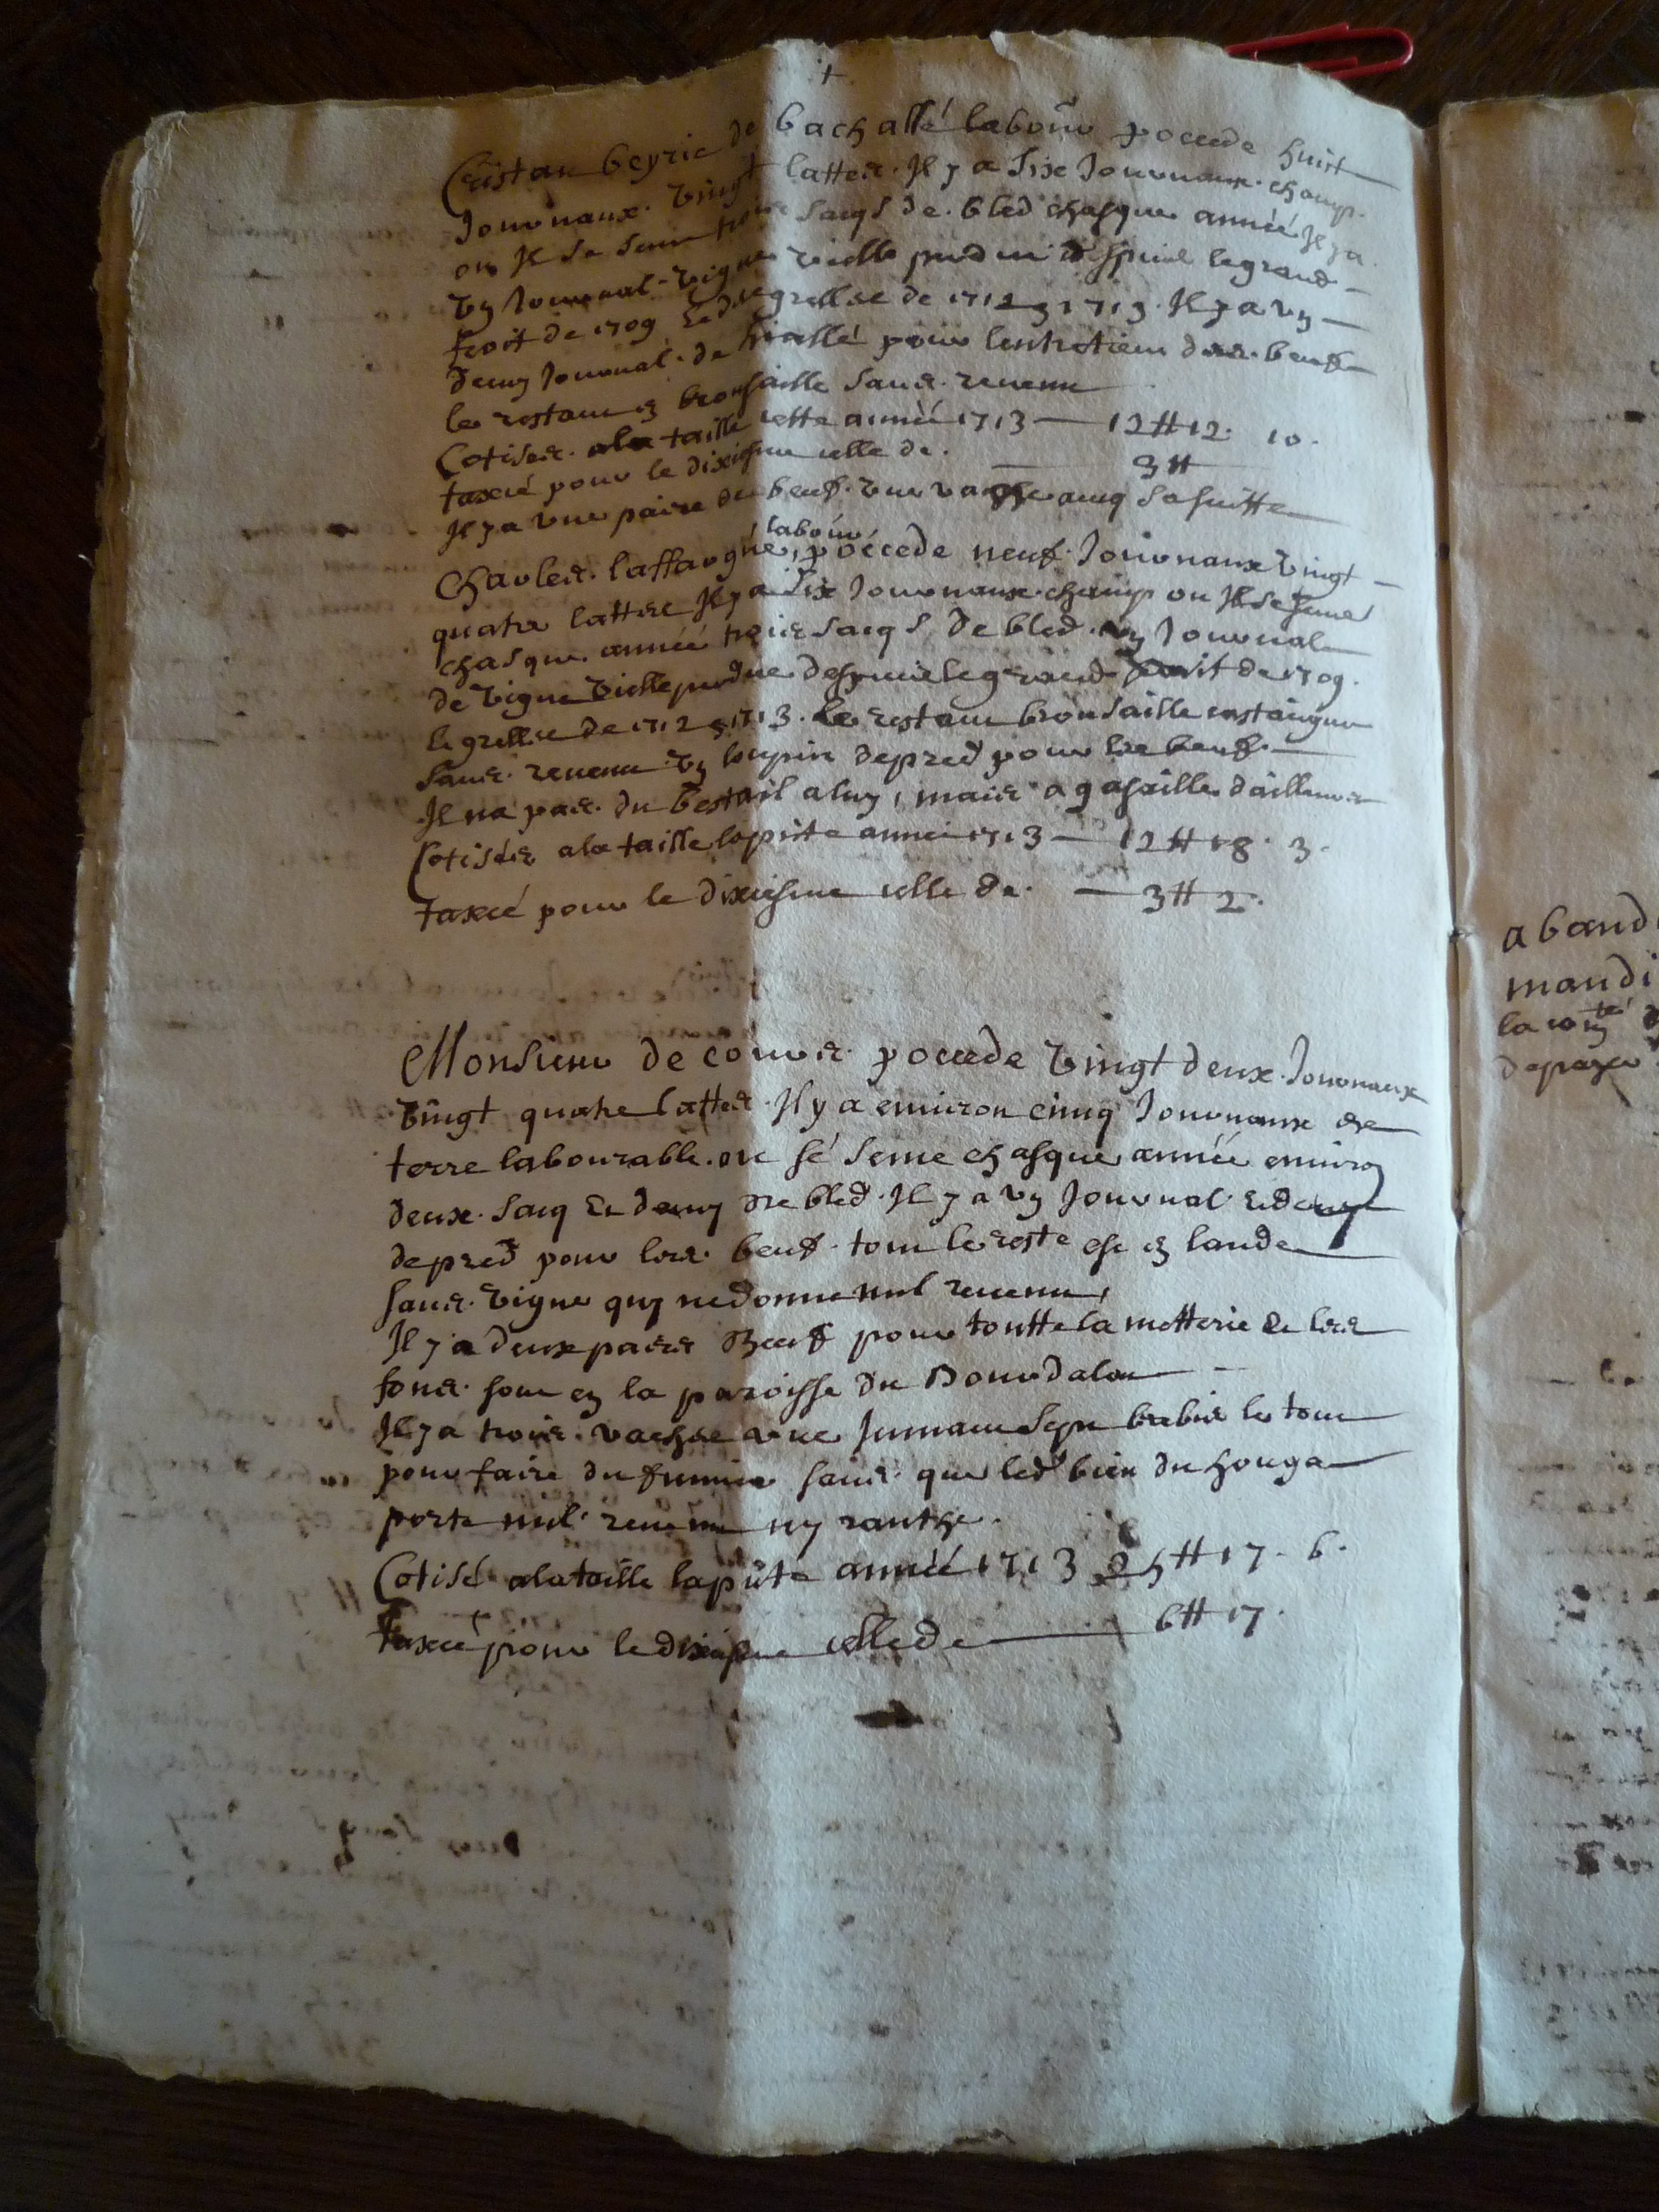 +
Cristau beyrie de bachassé labour pocede huit
Journaux vingt lattes. Il y a six Journaux champ.
ou Il se seme trois sacqs de bled chasque année Il y a
un Journal vigne vielle perdue despuis le grand
froit de 1709 Et de gresles de 1712 et 1713. Il y a un
demy Journal de pour lentretien des beufs
le restant en brousaille sans revenu
Cotisés a la taille cette année 1713 — 12 ₶ 12 10.
taxcé pour le dixiesme celle de — 3 ₶
Il y a une paire de beufs une vache avcq sa suitte
labour
Charles laffargue, pocede neuf Journaux vingt
quatre lattes Il y a six Journaux champ ou Il se seme
chasque année trois sacqs de bled un Journal
de vigne vielle perdue despuis le grand froit de 1709.
le gresles de 1712 et 1713. le restant brousaille
sans revenu un loupin de pred pour les beufs.
Il na pas du bestail a luy, mais a gasaille dailleurs
Cotisés a la taille la pnte année 1713 — 12 ₶ 18. 3.
taxcé pour le dixiesme celle de — 3 ₶ 2.
Monsieur de cours pocede vingt deux Journaux
vingt quatre lattes. Il y a environ cinq Journaux de
terre labourable. ou sé seme chasque année environ
deux sacq Et demy de bled. Il y a un Journal Et demy
de pred pour les beufs. tout le reste est en lande
sans vigne quy ne donne nul revenu,
Il y a deux paires Beufs pour toutte la metterie Et les
fons sont en la paroisse du Bourdalat
Il y a trois vaches une Jument sept brebis le tout
pour faire du fumier sans que led bien du houga
porte nul revenu ny
Cotisé a la taille la pnte année 1713 25 ₶ 17. 6.
taxcé pour le dixiesme celle de — 6 ₶ 17.
a band
mandi
la
de payer